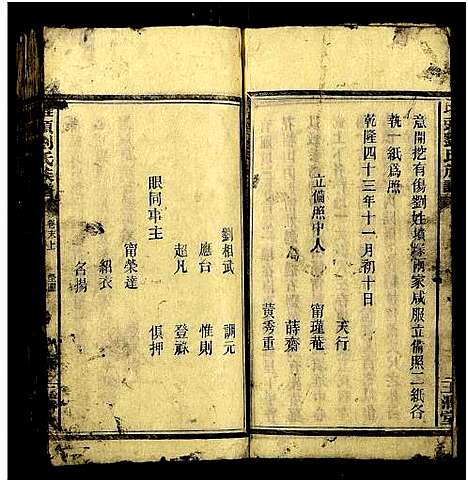 意開挖有傷劉姓墳塚兩家咸服立備照二紙各
執一紙爲照
乾隆四十三年十一月初十日
天行
立備照中人 甯瓊菴
薛齋
黃秀重
劉相武 調元
應台 惟則
眼同事主 超凡 登祿 俱押
甯榮達
絅衣
名揚
劉氏族譜
卷末上